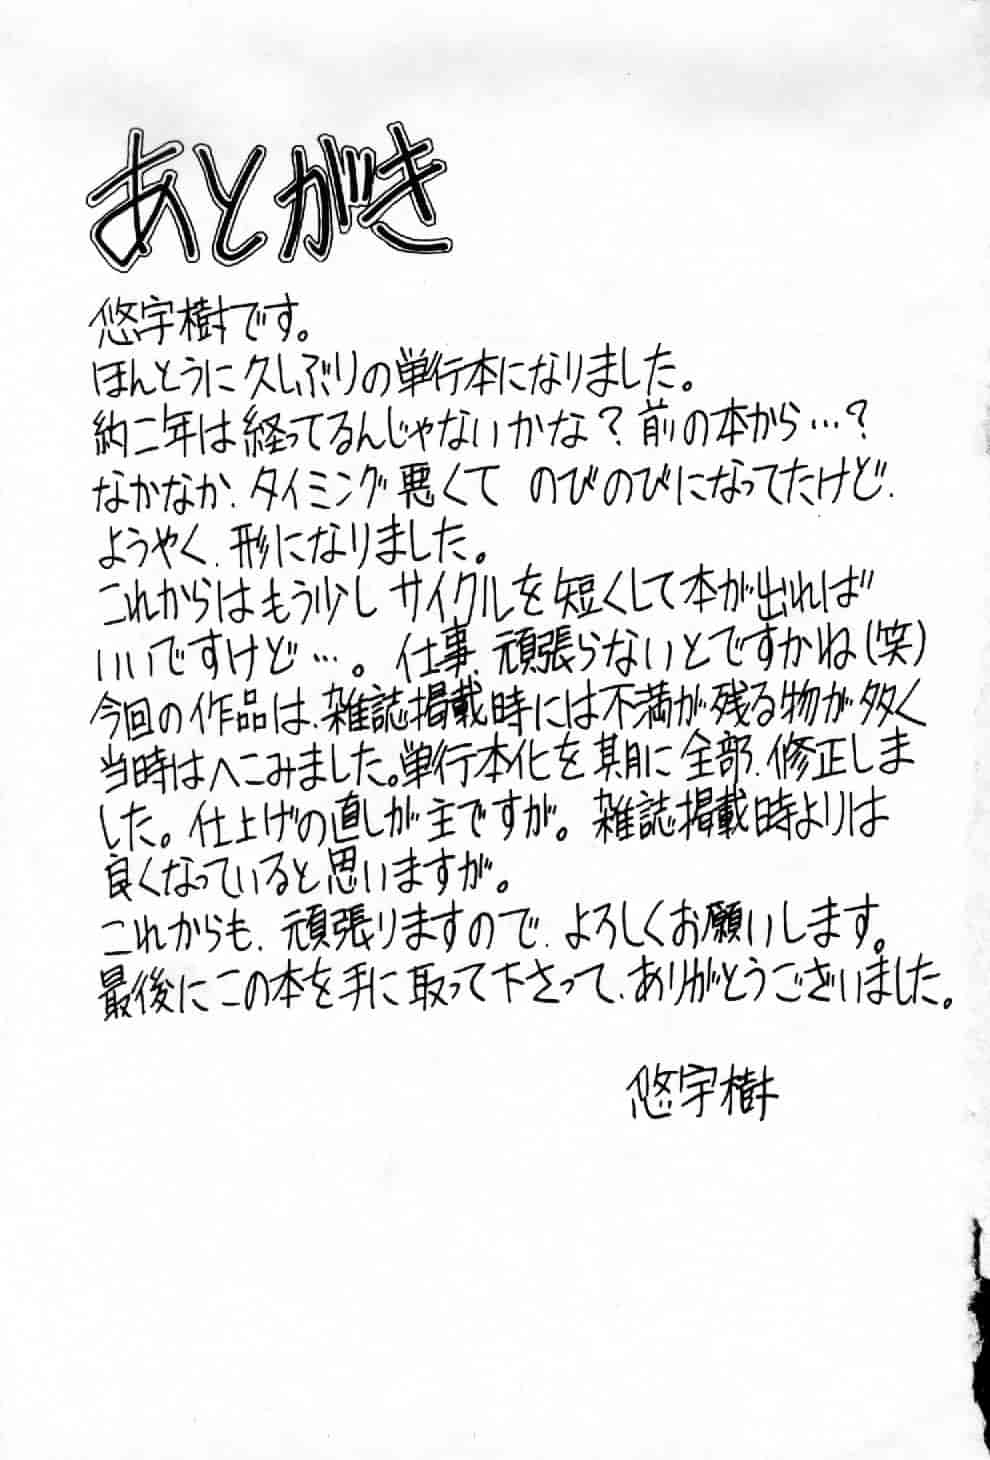 あとがき
悠宇樹です。
ほんとうに久しぶりの単行本になりました。
約二年は経ってるんじゃないかな?前の本から…?
なかなか、タイミング悪くて のびのびになってたけど、
ようやく、形になりました。
これからはもう少しサイクルを短くして本が出れば
いいですけど…。仕事、頑張らないとですかね(笑)
今回の作品は、雑誌掲載時には不満が残る物が多く
当時はへこみました。単行本化を期に全部、修正しま
した。仕上げの直しが主ですが。雑誌掲載時よりは
良くなっていると思いますが。
これからも、頑張りますので、よろしくお願いします。
最後にこの本を手に取って下さって、ありがとうございました。
悠宇樹